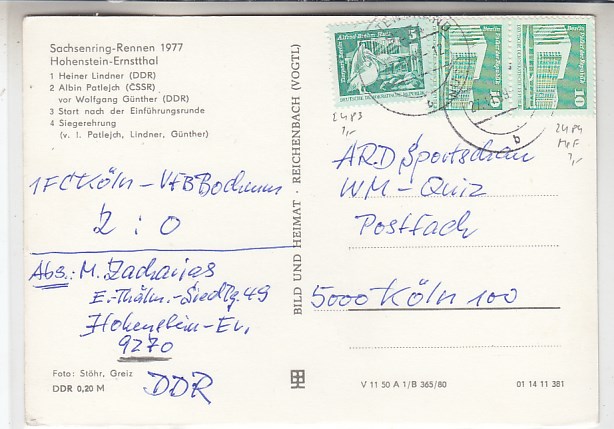 Sachsenring-Rennen 1977
Hohenstein-Ernstthal
1 Heiner Lindner (DDR)
2 Albin Patlejch (ČSSR)
vor Wolfgang Günther (DDR)
3 Start nach der Einführungsrunde
4 Siegerehrung
(v. l. Patlejch, Lindner, Günther)
1 FC Köln – VfB Bochum
2 : 0
Abs.: M. Zacharias
E.-Thälm.-Siedlg. 49
Hohenstein-Er.
9270
DDR
Foto: Stöhr, Greiz
DDR 0,20 M
BILD UND HEIMAT · REICHENBACH (VOGTL)
5
10
10
b
2483
1,-
2484
1,-
ARD Sportschau
WM-Quiz
Postfach
5000 Köln 100
V 11 50 A 1/B 365/80
01 14 11 381